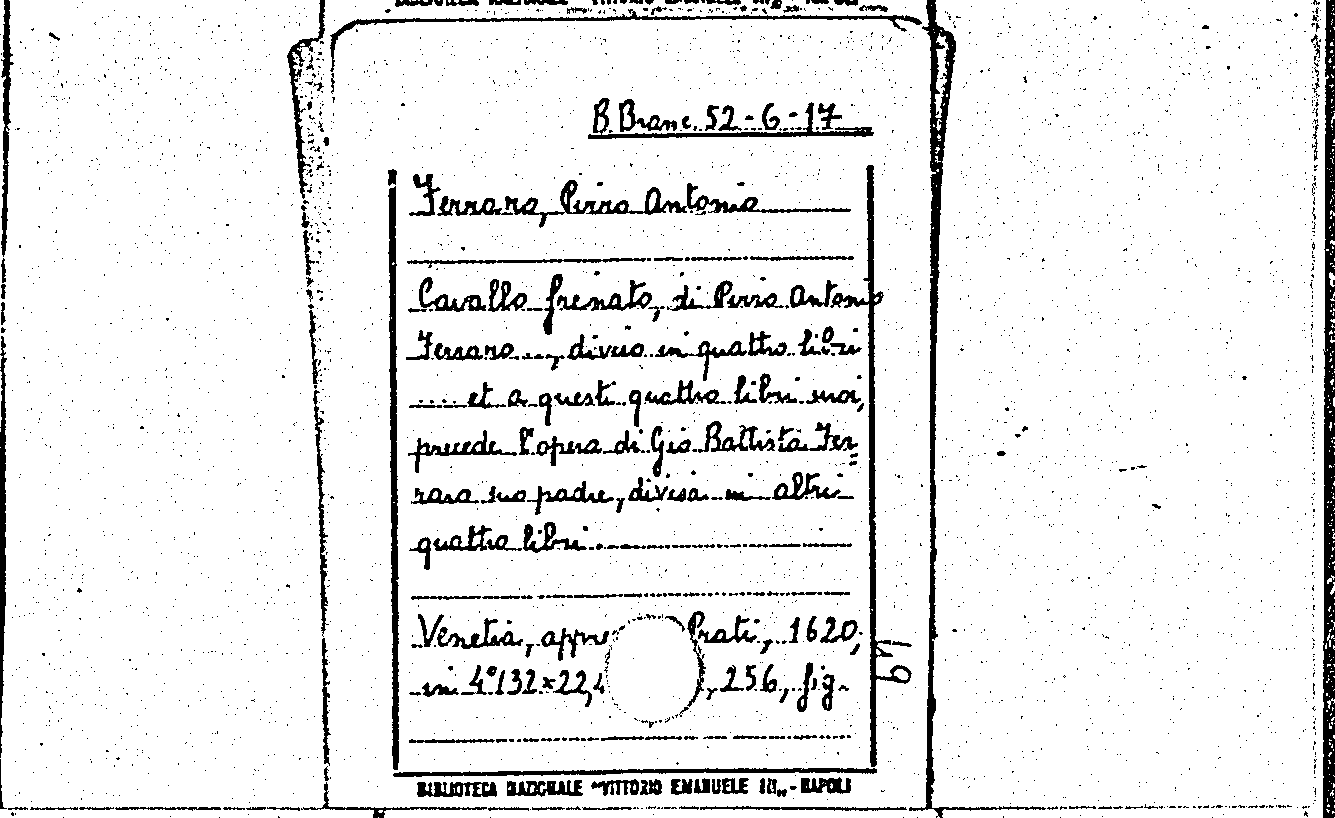 B. Branc. 52-6-17
Ferraro, Pirro Antonio
Cavallo frenato, di Pirro Antonio
Ferraro ..., diviso in quattro libri
.... et a questi quattro libri suoi,
precede l'opera di Gio Battista Fer=
rara suo padre, divisa in altri
quattro libri...
Venetia, appre Prati, 1620,
in 4°(32×22,4 , 256, fig.
BIBLIOTECA NAZIONALE "VITTORIO EMANUELE III„ - NAPOLI